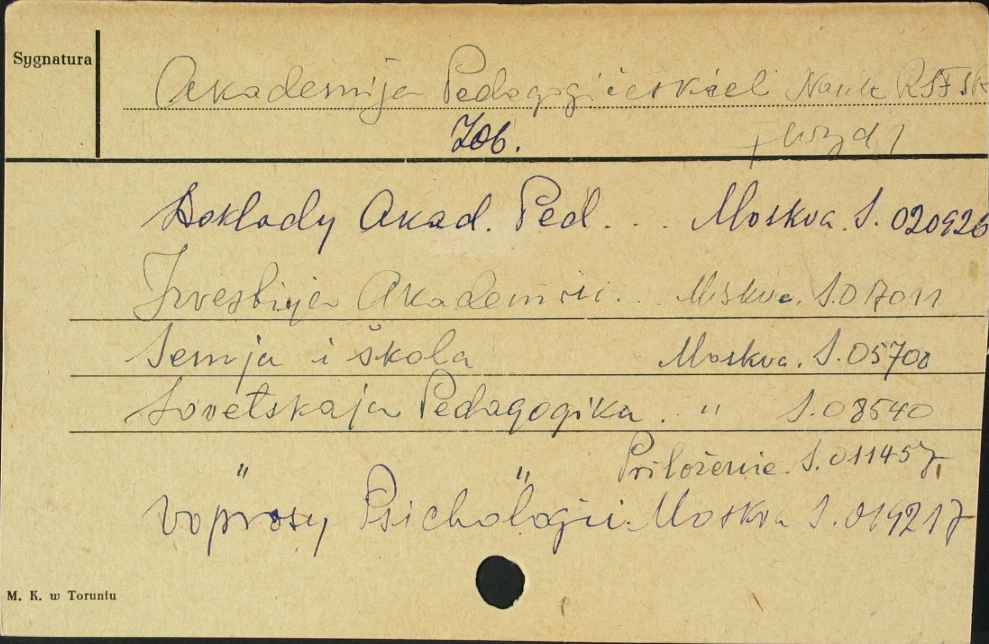 Sygnatura
Akademija Pedagogičeskich Nauk RSFSR
Zob.
Doklady Akad. Ped. ... Moskva. S. 020926
Izvestija Akademii... Moskva. S.017011
Semja i škola Moskva. S.05700
Sovetskaja Pedagogika. . " S.08540
" " Priloženie. S.011457
Voprosy Psichologii Moskva S.019217
M. K. w Toruniu